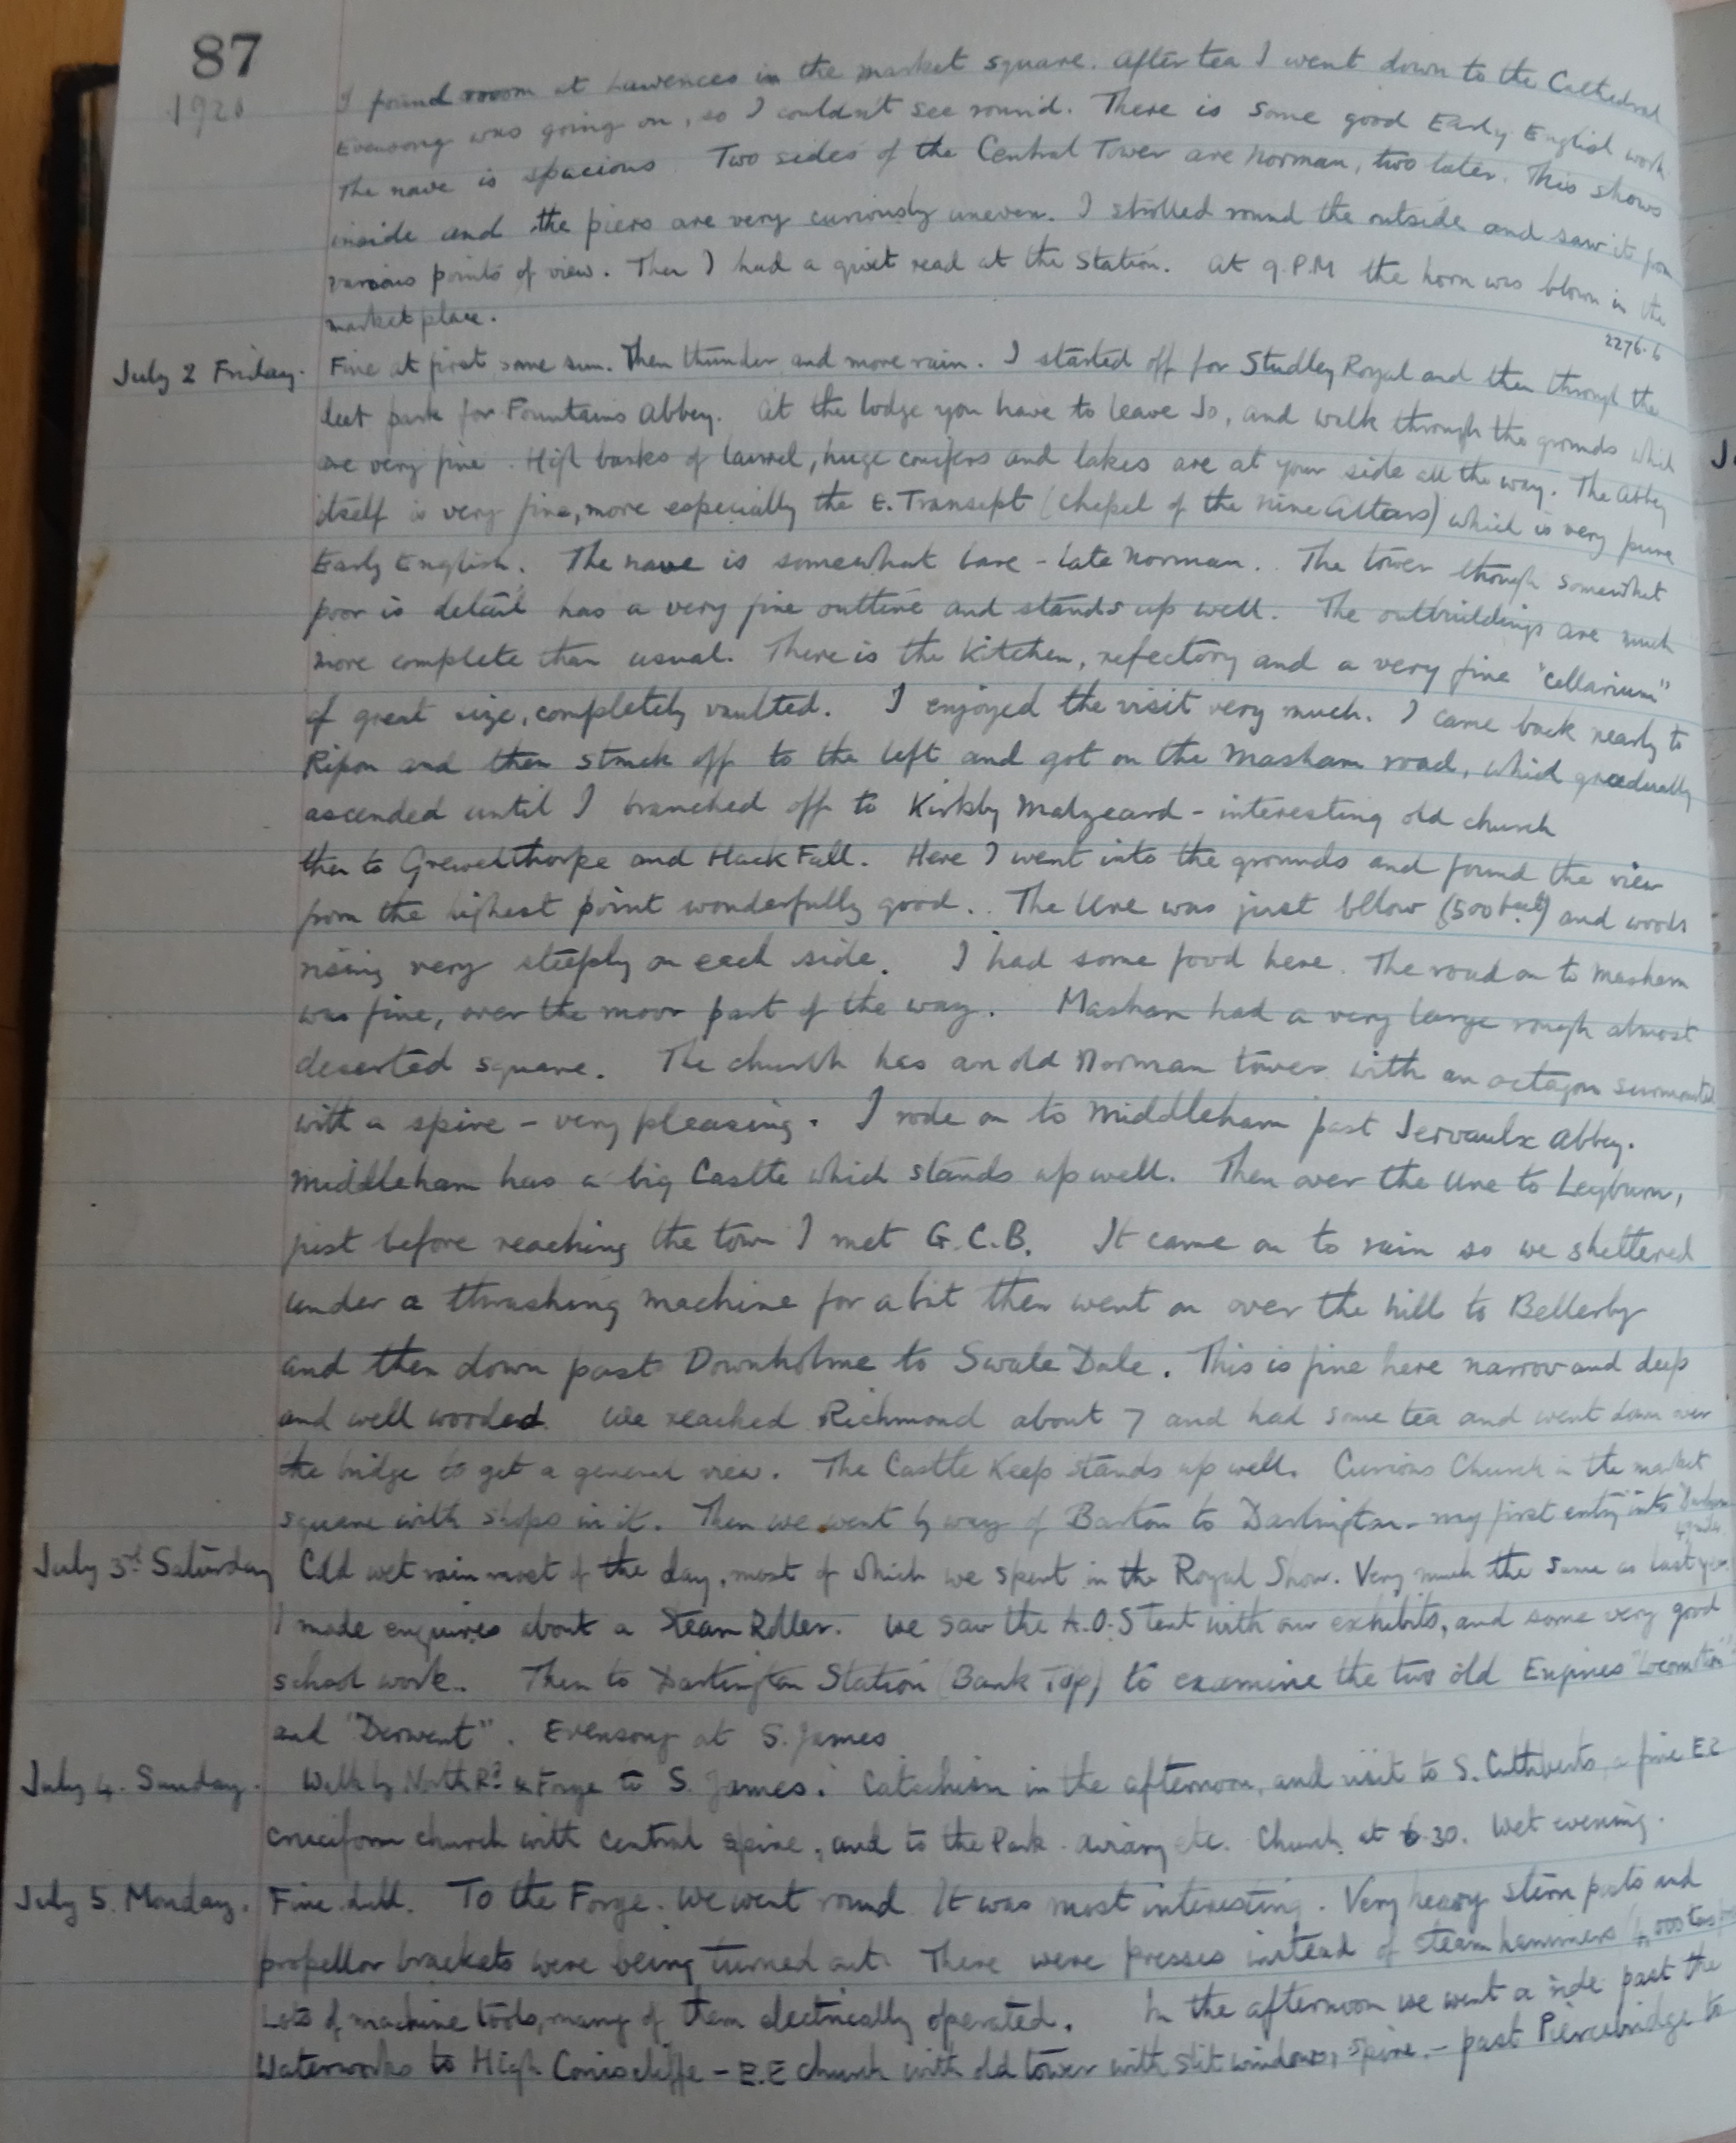 87
1920
I found room at Lawences in the market square. After tea I went down to the Cathedral
Evensong was going on, so I couldn't see round. There is some good Early English work
The nave is spacious. Two sides of the Central Tower are Norman, two later. This shows
inside and the piers are very curiously uneven. I strolled round the outside and saw it from
various points of view. Then I had a quiet read at the Station. At 9.P.M the horn was blown in the
market place.
2276.6
July 2 Friday. Fine at first some sun. Then thunder and more rain. I started off for Studley Royal and then through the
park for Fountains Abbey. At the lodge you have to leave Jo, and walk through the grounds which
are very fine. High banks of laurel, huge conifers and lakes are at your side all the way. The Abbey
itself is very fine, more especially the E. Transept (Chapel of the nine Altars) which is very pure
Early English. The nave is somewhat bare - late Norman. The tower though somewhat
poor is detail has a very fine outline and stands up well. The outbuildings are much
more complete than usual. There is the Kitchen, refectory and a very fine "cellarium"
of great size, completely vaulted. I enjoyed the visit very much. I came back nearly to
Ripon and then struck off to the left and got on the Masham road, which gradually
ascended until I branched off to Kirkby Malzeard - interesting old church
then to Grewelthorpe and Hack Fall. Here I went into the grounds and found the view
from the highest point wonderfully good. The Ure was just below (500 feet) and woods
rising very steeply on each side. I had some food here. The road on to Masham
was fine, over the moor part of the way. Masham had a very large rough almost
deserted square. The church has an old Norman tower with an octagon surmounted
with a spire - very pleasing. I rode on to Middleham past Jervaulx Abbey.
Middleham has a big Castle which stands up well. Then over the Ure to Leyburn,
just before reaching the town I met G.C.B. It came on to rain so we sheltered
under a thrashing machine for a bit then went on over the hill to Bellerby
and then down past Downholme to Swale Dale. This is fine here narrow and deep
and well wooded. We reached Richmond about 7 and had some tea and went down over
the bridge to get a general view. The Castle Keep stands up well. Curious Church in the market
square with shops in it. Then we went by way of Barton to Darlington - my first entry into Durham
July 3rd Saturday Cold wet rain most of the day, most of which we spent in the Royal Show. Very much the same as last year.
I made enquires about a Steam Roller. We saw the A.O.S tent with our exhibits, and some very good
school work. Then to Darlington Station (Bank Top) to examine the two old Engines "Locomotion"
and "Derwent". Evensong at S. James
July 4. Sunday. Walk by North Rd & Forge to S. James. Catechism in the afternoon, and visit to S. Cuthberts, a fine EE
cruciform church with central spire, and to the Park. aviary etc. Church at 6.30. Wet evening.
July 5. Monday. Fine. dull. To the Forge. We went round. It was most interesting. Very heavy stern posts and
propellor brackets were being turned out. There were presses instead of steam hammers 4,000 tons
Lots of machine tools, many of them electrically operated. In the afternoon we went a ride past the
Waterworks to High Coniscliffe - E.E church with old tower with slit windows, spire. - past Piercebridge to